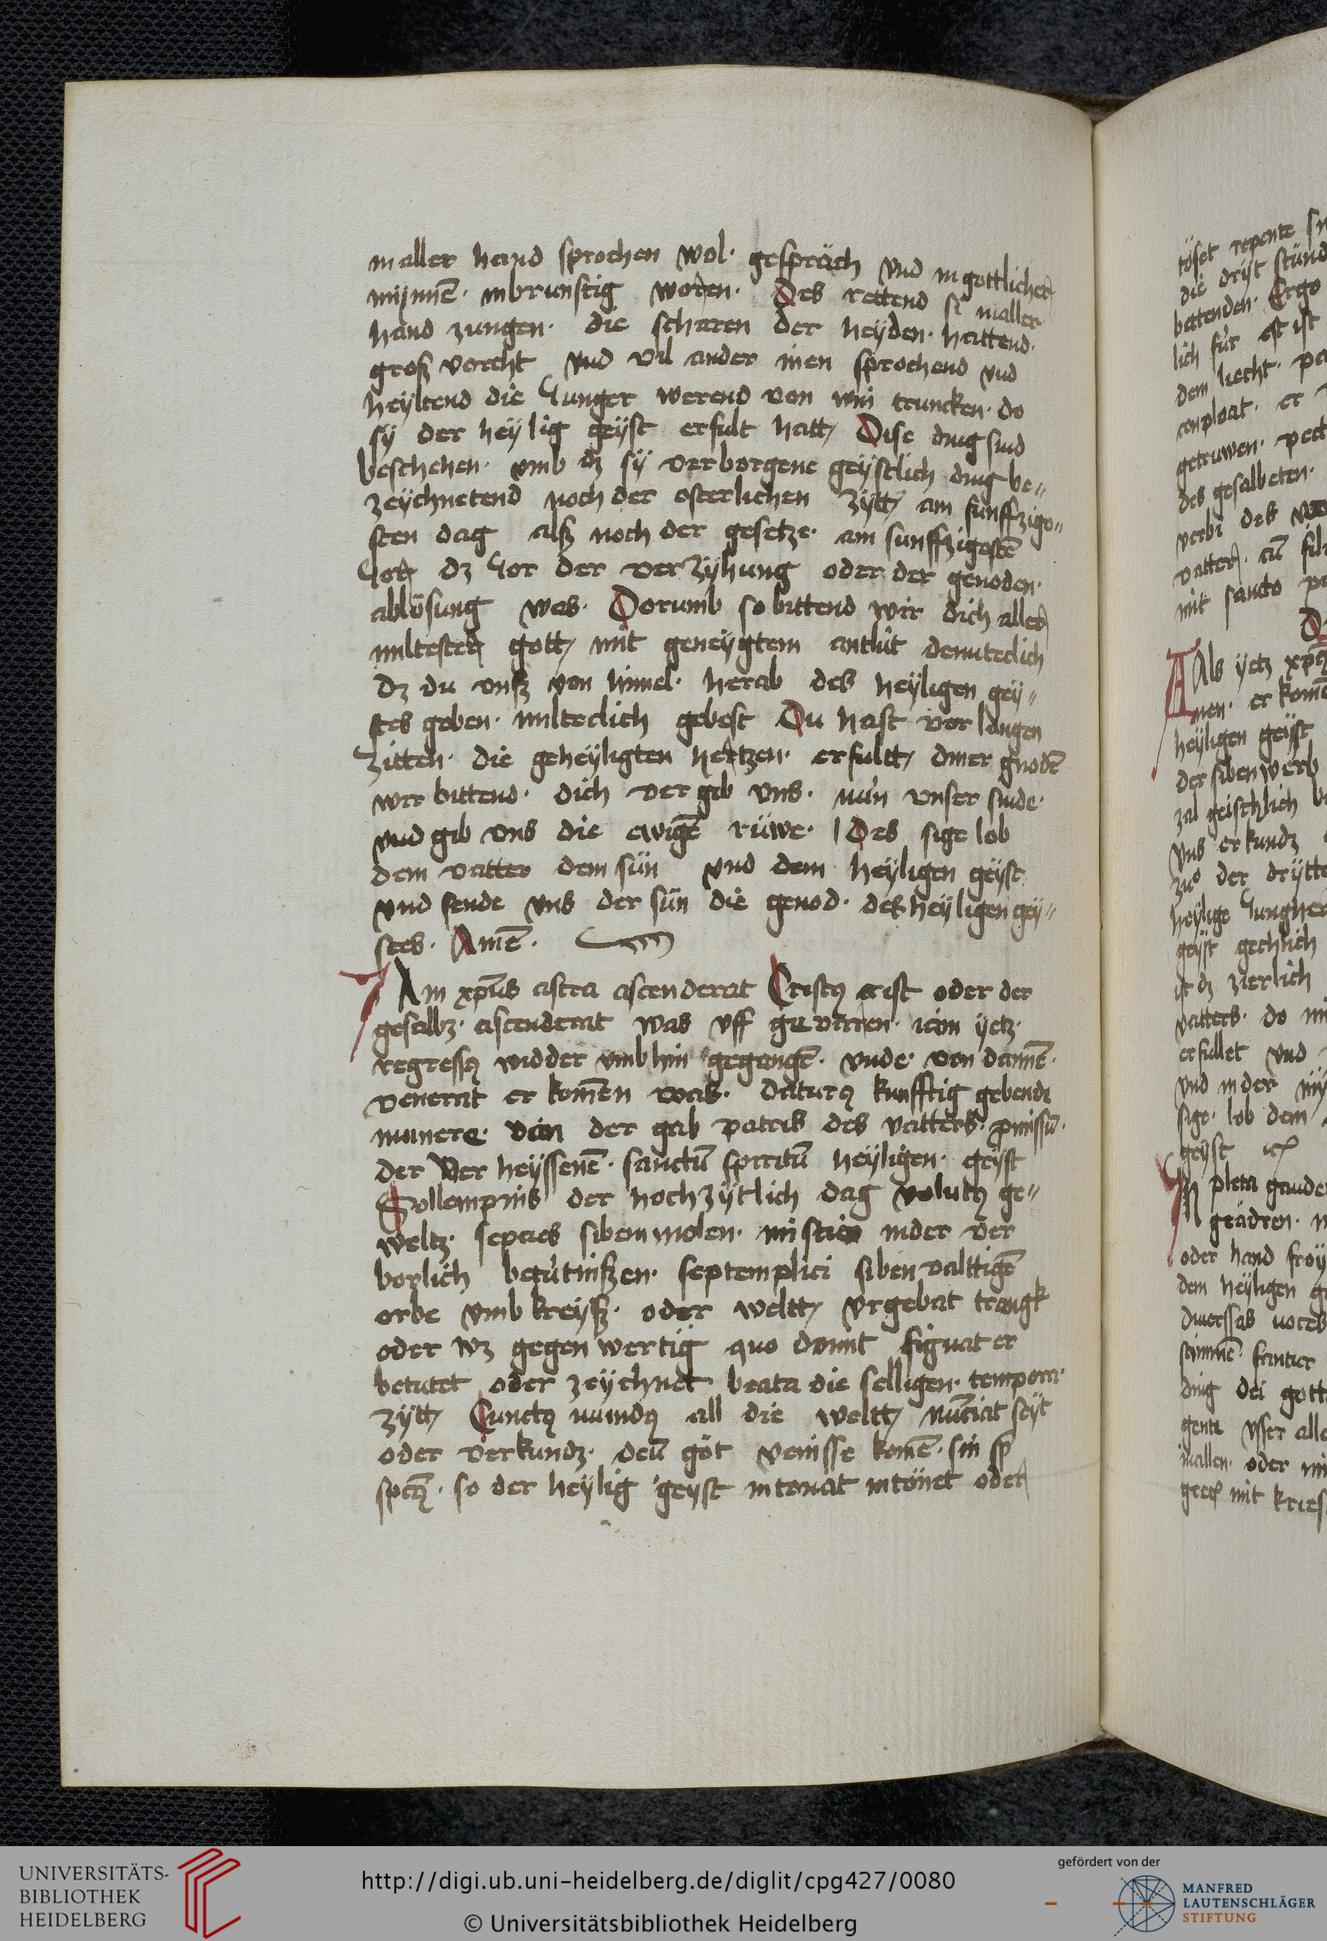 in aller hand sprochen wol· gespräch vnd in gottlicher
mÿnnē· inbrunstig worden· Des rettend si in aller
hand zungen· die scharen der heyden· hattend·
grosz vorcht vnd vil ander men sprochend vnd
heyltend die Junger werend von win truncken· do
sÿ der heylig geÿst erfult hatt, Dise ding sind
beschehen· vmb dz sÿ verborgene geÿstlich ding be„
zeÿchnetend noch der osterlichen zÿtt, am funffzigo„
sten dag alsz noch der gesetze· am funffzigostē
Jor dz Jor der verzÿhung oder der genoden·
ablösung wes· Dorumb so bittend wir dich aller
miltester gott, mit geneÿgtem antlüt demuteclich
dz du vnsz von himel· herab des heÿligen geÿ„
stes goben· milteclich gebest Du hast vor langen
zitten· die geheÿligten hertzen· erfultt, diner gnodē
wir bittend· dich ver gib vns· nün vnser sinde·
vnd gib vns die ewigē rüwe· Des sige lob
dem vatter dem sün vnd dem heÿligen geÿst
vnd sende vns der sün die genod· des heÿligen geÿ„
stes· Amē·
JAm xpūs astra ascenderat Cristꝯ crist oder der
gesalbz· ascenderat was vff gevaren· iam ÿetz·
regressꝯ widder vmb hin gegangē· vnde· von dannē·
venerat er komen was· daturꝯ kunfftig gebende
munere· von der gab patris des vatters· promissū·
der ver heÿssenē· sanctū spiritū heÿligen· geÿst
Sollempnis der hochzÿtlich dag volutꝯ ge„
weltz· septies siben molen· mistico in der ver
borlich betütniszen· septemplici siben valttigē
orbe vmb kreÿsz· oder weltt, vrgebat trangk
oder wz gegen wertig quo domit signat er
betutet oder zeÿchnet beata die selligen· tempora·
zÿtt, Cunctꝯ mundꝯ all die weltt, nūciat seÿt
oder verkundz· deū got venisse komē· sin sp
so der heÿlig geÿst intonat intönet oder
die drÿt stünd
battenden· Ergo
lich für
dem liecht·
er
getruwen·
des gesalbeten·
verbi des
vatter·
mit sancto
Als ÿetz
men· er komē
heÿligen geÿst
der siben werb
zal geistlich
vns erkundz
zuo der drÿtte
heÿlige Jungher
geÿst gechlich
ist dz zierlich
vatters· do
erfullet vnd
vnd in der
sige· lob dem
geÿst
oder hand fröÿ
dem heÿligen
diuerssas voces
stimmē·
ding dei gott
gente vsser alle
in allen· oder
mit kries
UNIVERSITÄTS-
BIBLIOTHEK
HEIDELBERG
http://digi.ub.uni-heidelberg.de/diglit/cpg427/0080
© Universitätsbibliothek Heidelberg
gefördert von der
MANFRED
LAUTENSCHLÄGER
STIFTUNG